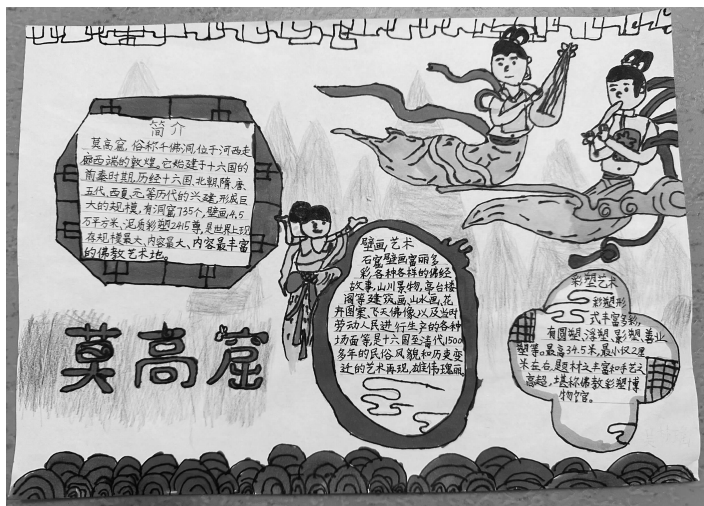 简介
莫高窟,俗称千佛洞,位于河西走
廊西端的敦煌。它始建于十六国的
前秦时期,历经十六国、北朝、隋、唐、
五代、西夏、元等历代的兴建,形成巨
大的规模,有洞窟735个,壁画4.5
万平方米、泥质彩塑2415尊,是世界上现
存规模最大、内容最大、内容最丰富
的佛教艺术地。
莫高窟
壁画艺术
石窟壁画富丽多
彩,各种各样的佛经
故事,山川景物,亭台楼
阁等建筑画、山水画、花
卉图案、飞天佛像以及当时
劳动人民进行生产的各种
场面等是十六国至清代1500
多年的民俗风貌和历史变
迁的艺术再现,雄伟瑰丽。
彩塑艺术
彩塑形
式丰富多彩,
有圆塑、浮塑、影塑、善业
塑等。最高34.5米,最小仅2厘
米左右,题材之丰富和手艺之
高超,堪称佛教彩塑博
物馆。